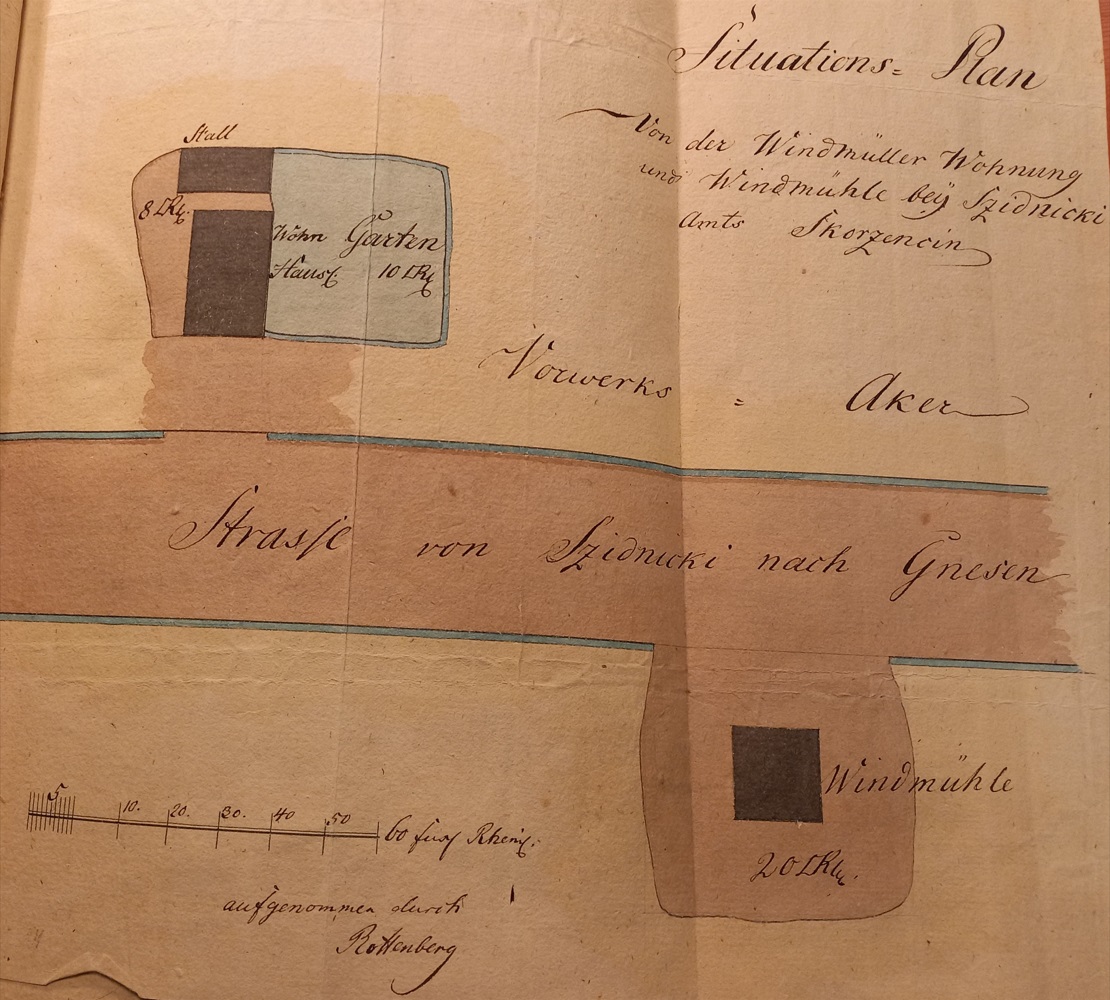 Situations= Plan
Von der Windmüller Wohnung
und Windmühle beÿ Szidnicki
Amts Skorzencin
Stall
8 □Rt.
Wohn Garten
Hauß. 10 □Rt.
Vorwerks = Aker
Strasse von Szidnicki nach Gnesen
Windmühle
20 □Rt.
5 10. 20. 30. 40 50 60 fuß Rheinl.
aufgenommen durch
Rottenberg